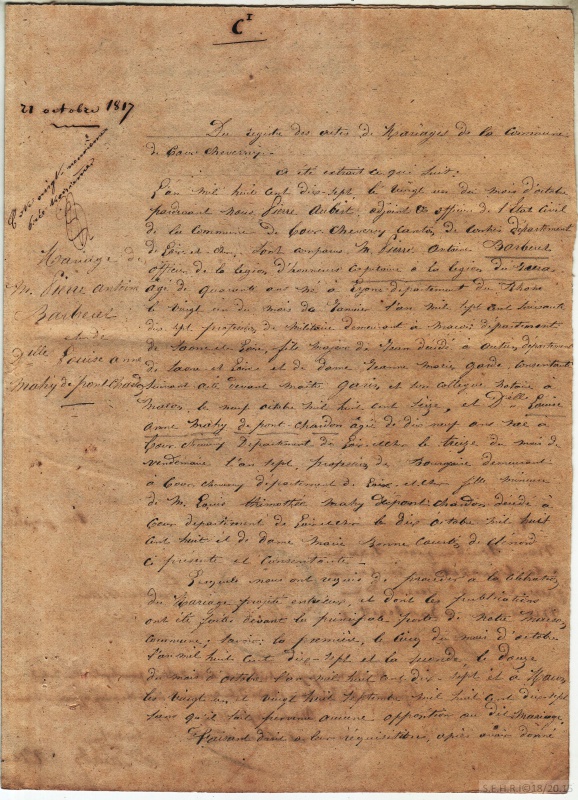 C¹
21 octobre 1817
Mariage de
M. Pierre Antoine
Barbeut
et de
Dlle Louise anne
Mahy de pont Chardon
Du registre des actes de Mariages de la Commune
de Cour Cheverny.
a été extrait ce qui suit:
L'an mil huit cent dix-sept le vingt un du mois d'octobre
pardevant nous Pierre Aubert, adjoint et officier de l'Etat Civil
de la Commune de Cour Cheverny canton de Contres département
de Loir-et-cher, sont comparus M. Pierre Antoine Barbeut
officier de la légion d'honneur Capitaine à la légion du
agé de quarante ans né à Lyon département du Rhone
le vingt un du mois de Janvier l'an mil sept cent soixante
dix sept, profession de militaire demeurant à macon département
de Saone et Loire, fils majeur de décédé à département
de Saone et Loire et de dame Jeanne marie garde consentant
suivant acte devant maitre et son collegue notaire à
macon le neuf octobre mil huit cent seize, et Dlle Louise
Anne Mahy de pont-chardon agée de dix neuf ans née à
Cour cheverny Département de Loir-et-cher le treize du mois de
vendemiaire l'an sept, profession de demeurant
à Cour cheverny département de Loir-et-cher fille mineure
de M. Louis thimothée mahy depont Chardon décédé à
Cour departement de Loir-et-cher le dix octobre mil huit
cent huit et de dame Marie Bonne de St
ci présente et Consentante.
Lesquels nous ont requis de procéder à la célébration
du Mariage projeté entr'eux, et dont les publications
ont été faites devant la principale porte de notre maison
Commune; savoir: la première, le cinq du mois d'octobre
l'an mil huit cent dix-sept et la seconde, le douze
du mois d'octobre l'an mil huit cent dix-sept et à Macon
les vingt un et vingt huit septembre mil huit cent dix sept
sans qu'il soit parvenu aucune opposition au dit Mariage.
Faisant droit à leur réquisition, après avoir donné
S.E.H.R.I©18/20.15